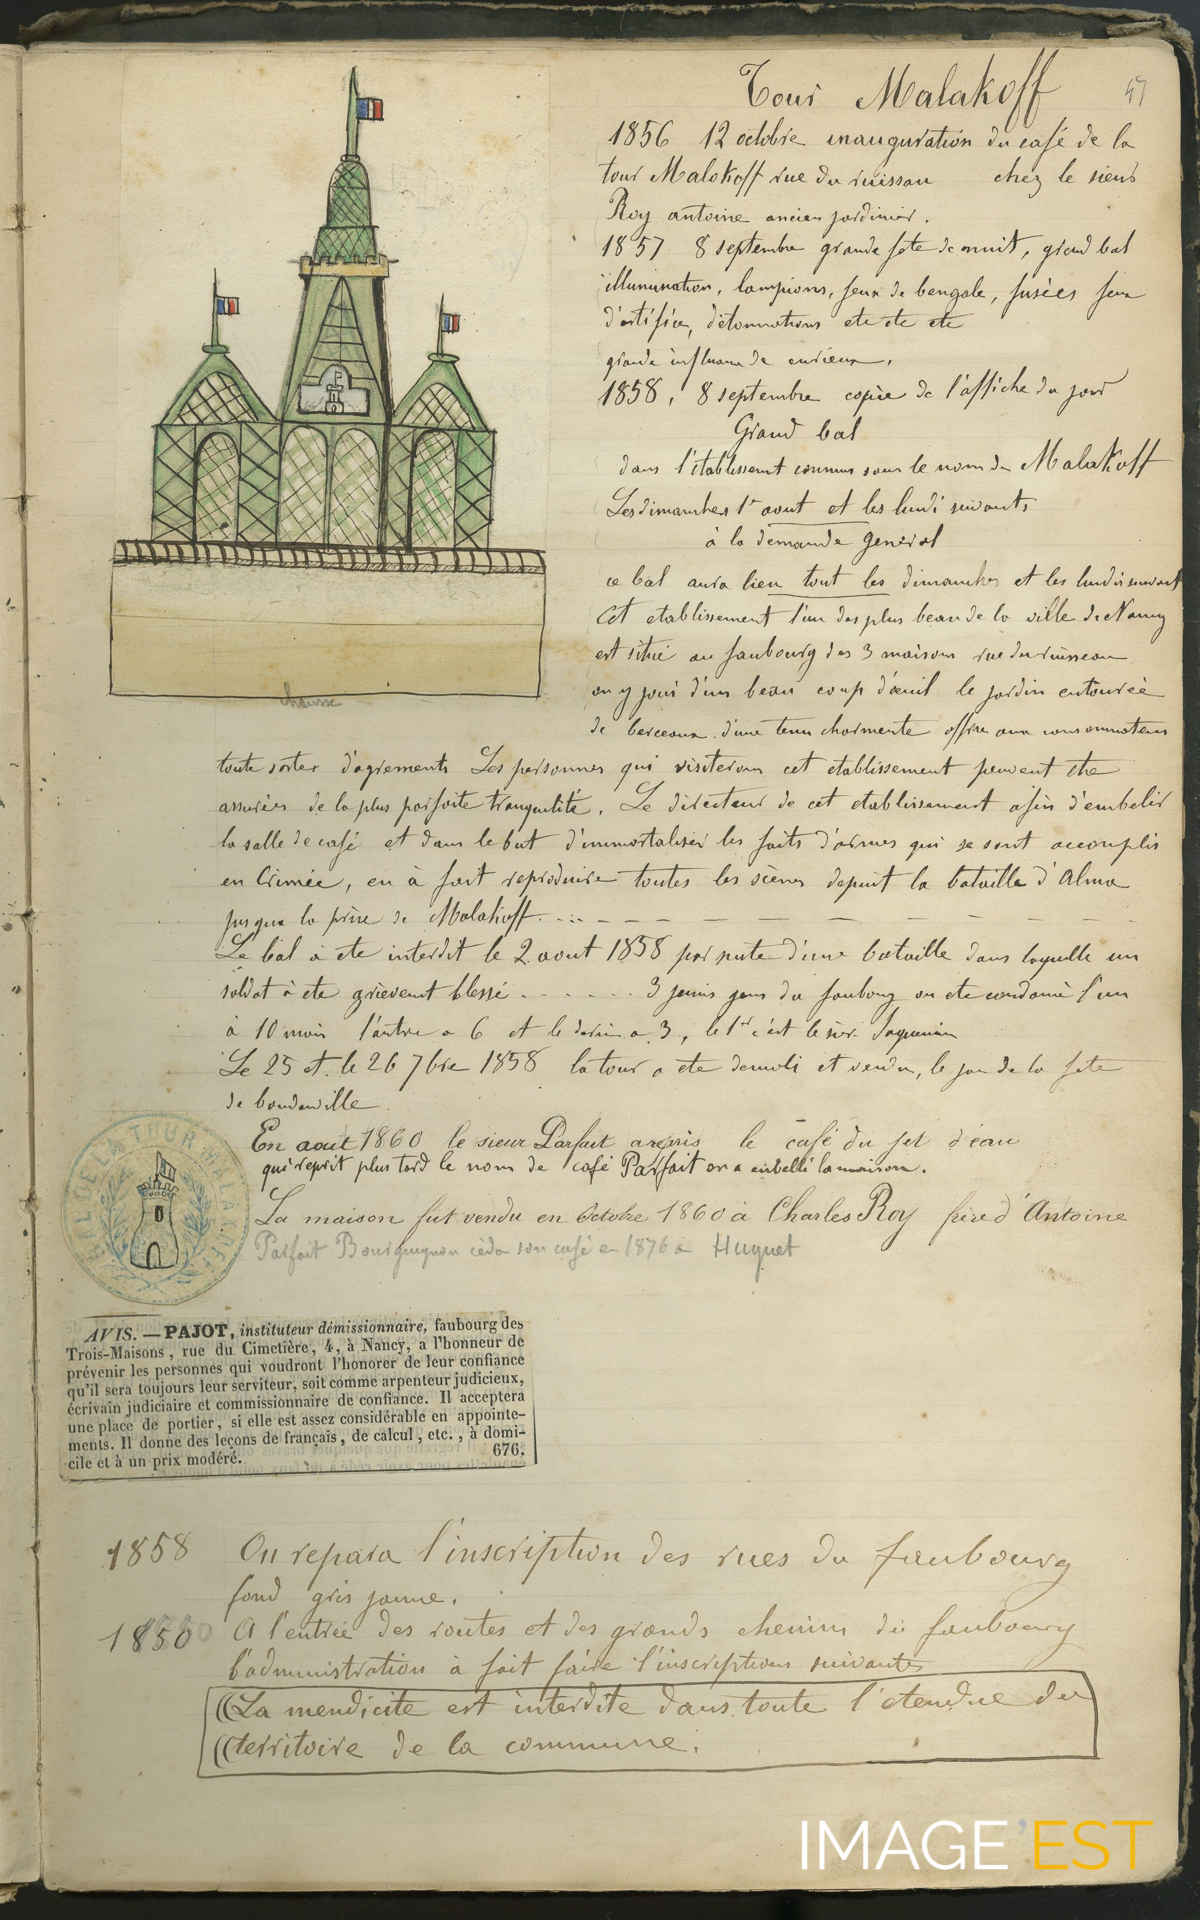 Tour Malakoff
47
1856 12 octobre inauguration du café de la
tour Malakoff rue du ruisseau chez le sieur
Roy antoine ancien jardinier.
1857 8 septembre grande fete de nuit, grand bal
illumination, lampions, feux de bengale, fusées feux
d'artifice, détonnations etc etc etc
grande influance de curieux.
1858, 8 septembre copie de l'affiche du jour
Grand bal
dans l'établissement connus sous le nom de Malakoff
Les dimanches 1er aout et les lundi suivants
à la demande general
ce bal aura lieu tout les dimanches et les lundis suivant
Cet etablissement l'un des plus beau de la ville de Nancy
est situé au faubourg des 3 maisons rue du ruisseau
on y joui d'un beau coup d'œuil le jardin entourée
de berceaux d'une tenu charmente offre aux consommateurs
toute sortes d'agrements Les personnes qui visiterons cet etablissement peuvent etre
assurées de la plus parfaite tranquilité. Le directeur de cet etablissement afin d'embelir
la salle de café et dans le but d'immortaliser les faits d'armes qui se sont accomplis
en Crimée, en à fait reproduire toutes les scènes depuit la bataille d'Alma
jusqua la prise de Malakoff
Le bal à ete interdit le 2 aout 1858 par suite d'une bataille dans laquelle un
soldat à ete grievement blessé . . . . . . 3 jeunes gens du faubourg on ete condamné l'un
à 10 mois l'autre a 6 et le dernier a 3, le 1er c'est le sieur
Le 25 et le 26 7bre 1858 la tour a ete demoli et vendu, le jour de la fete
de boudonville
En aout 1860 le sieur Parfait arepris le café du jet d'eau
qui reprit plus tard le nom de café Parfait on a embelli la maison.
La maison fut vendu en Octobre 1860 à Charles Roy frère d'Antoine
Parfait Bourguignon céda son café en 1876 à Huguet
chausse
BAL DE LA TOUR MALAKOFF
AVIS. — PAJOT, instituteur démissionnaire, faubourg des
Trois-Maisons, rue du Cimetière, 4, à Nancy, a l'honneur de
prévenir les personnes qui voudront l'honorer de leur confiance
qu'il sera toujours leur serviteur, soit comme arpenteur judicieux,
écrivain judiciaire et commissionnaire de confiance. Il acceptera
une place de portier, si elle est assez considérable en appointe-
ments. Il donne des leçons de français, de calcul, etc., à domi-
cile et à un prix modéré. 676.
1858 On repara l'inscription des rues du faubourg
fond gris jaune.
1850 A l'entrée des routes et des grands chemins du faubourg
l'administration à fait faire l'inscriptions suivante
((La mendicite est interdite dans toute l'etendue du
((territoire de la commune.
IMAGE'EST